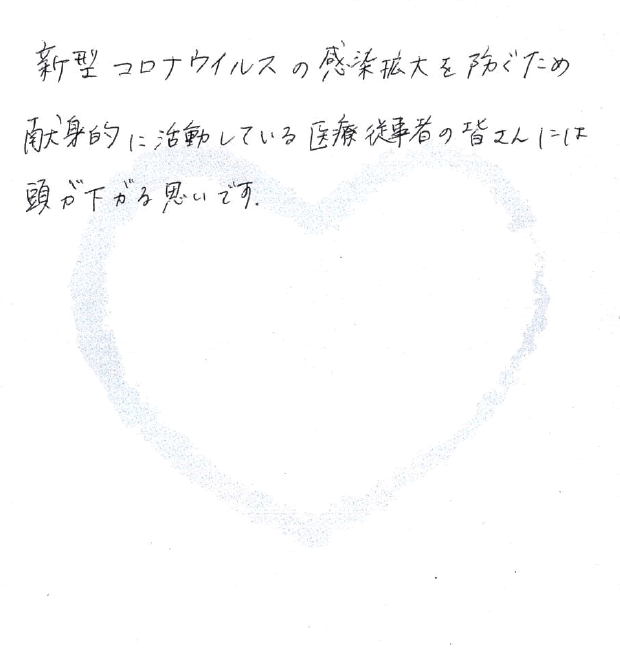 新型コロナウイルスの感染拡大を防ぐため
献身的に活動している医療従事者の皆さんには
頭が下がる思いです.